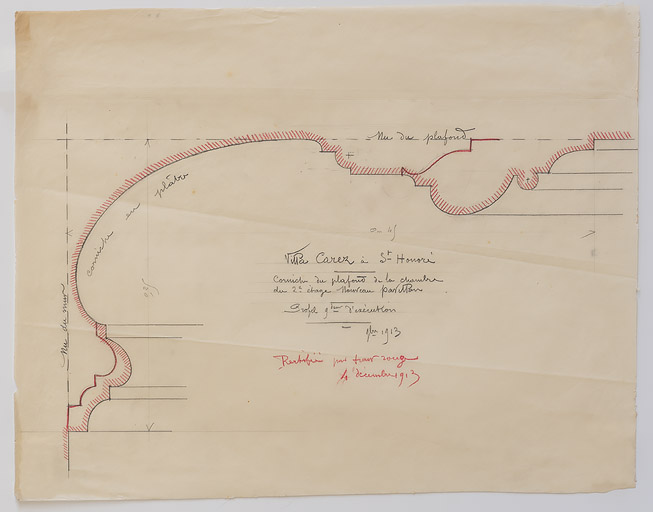 Nu du plafond
corniche en plâtre
Nu du mur
Villa Carez à St Honoré
Corniche du plafond de la chambre
du 2e étage Nouveau pavillon
Profil gdeur d'exécution
1913
Rectifié par trait rouge
4 décembre 1913